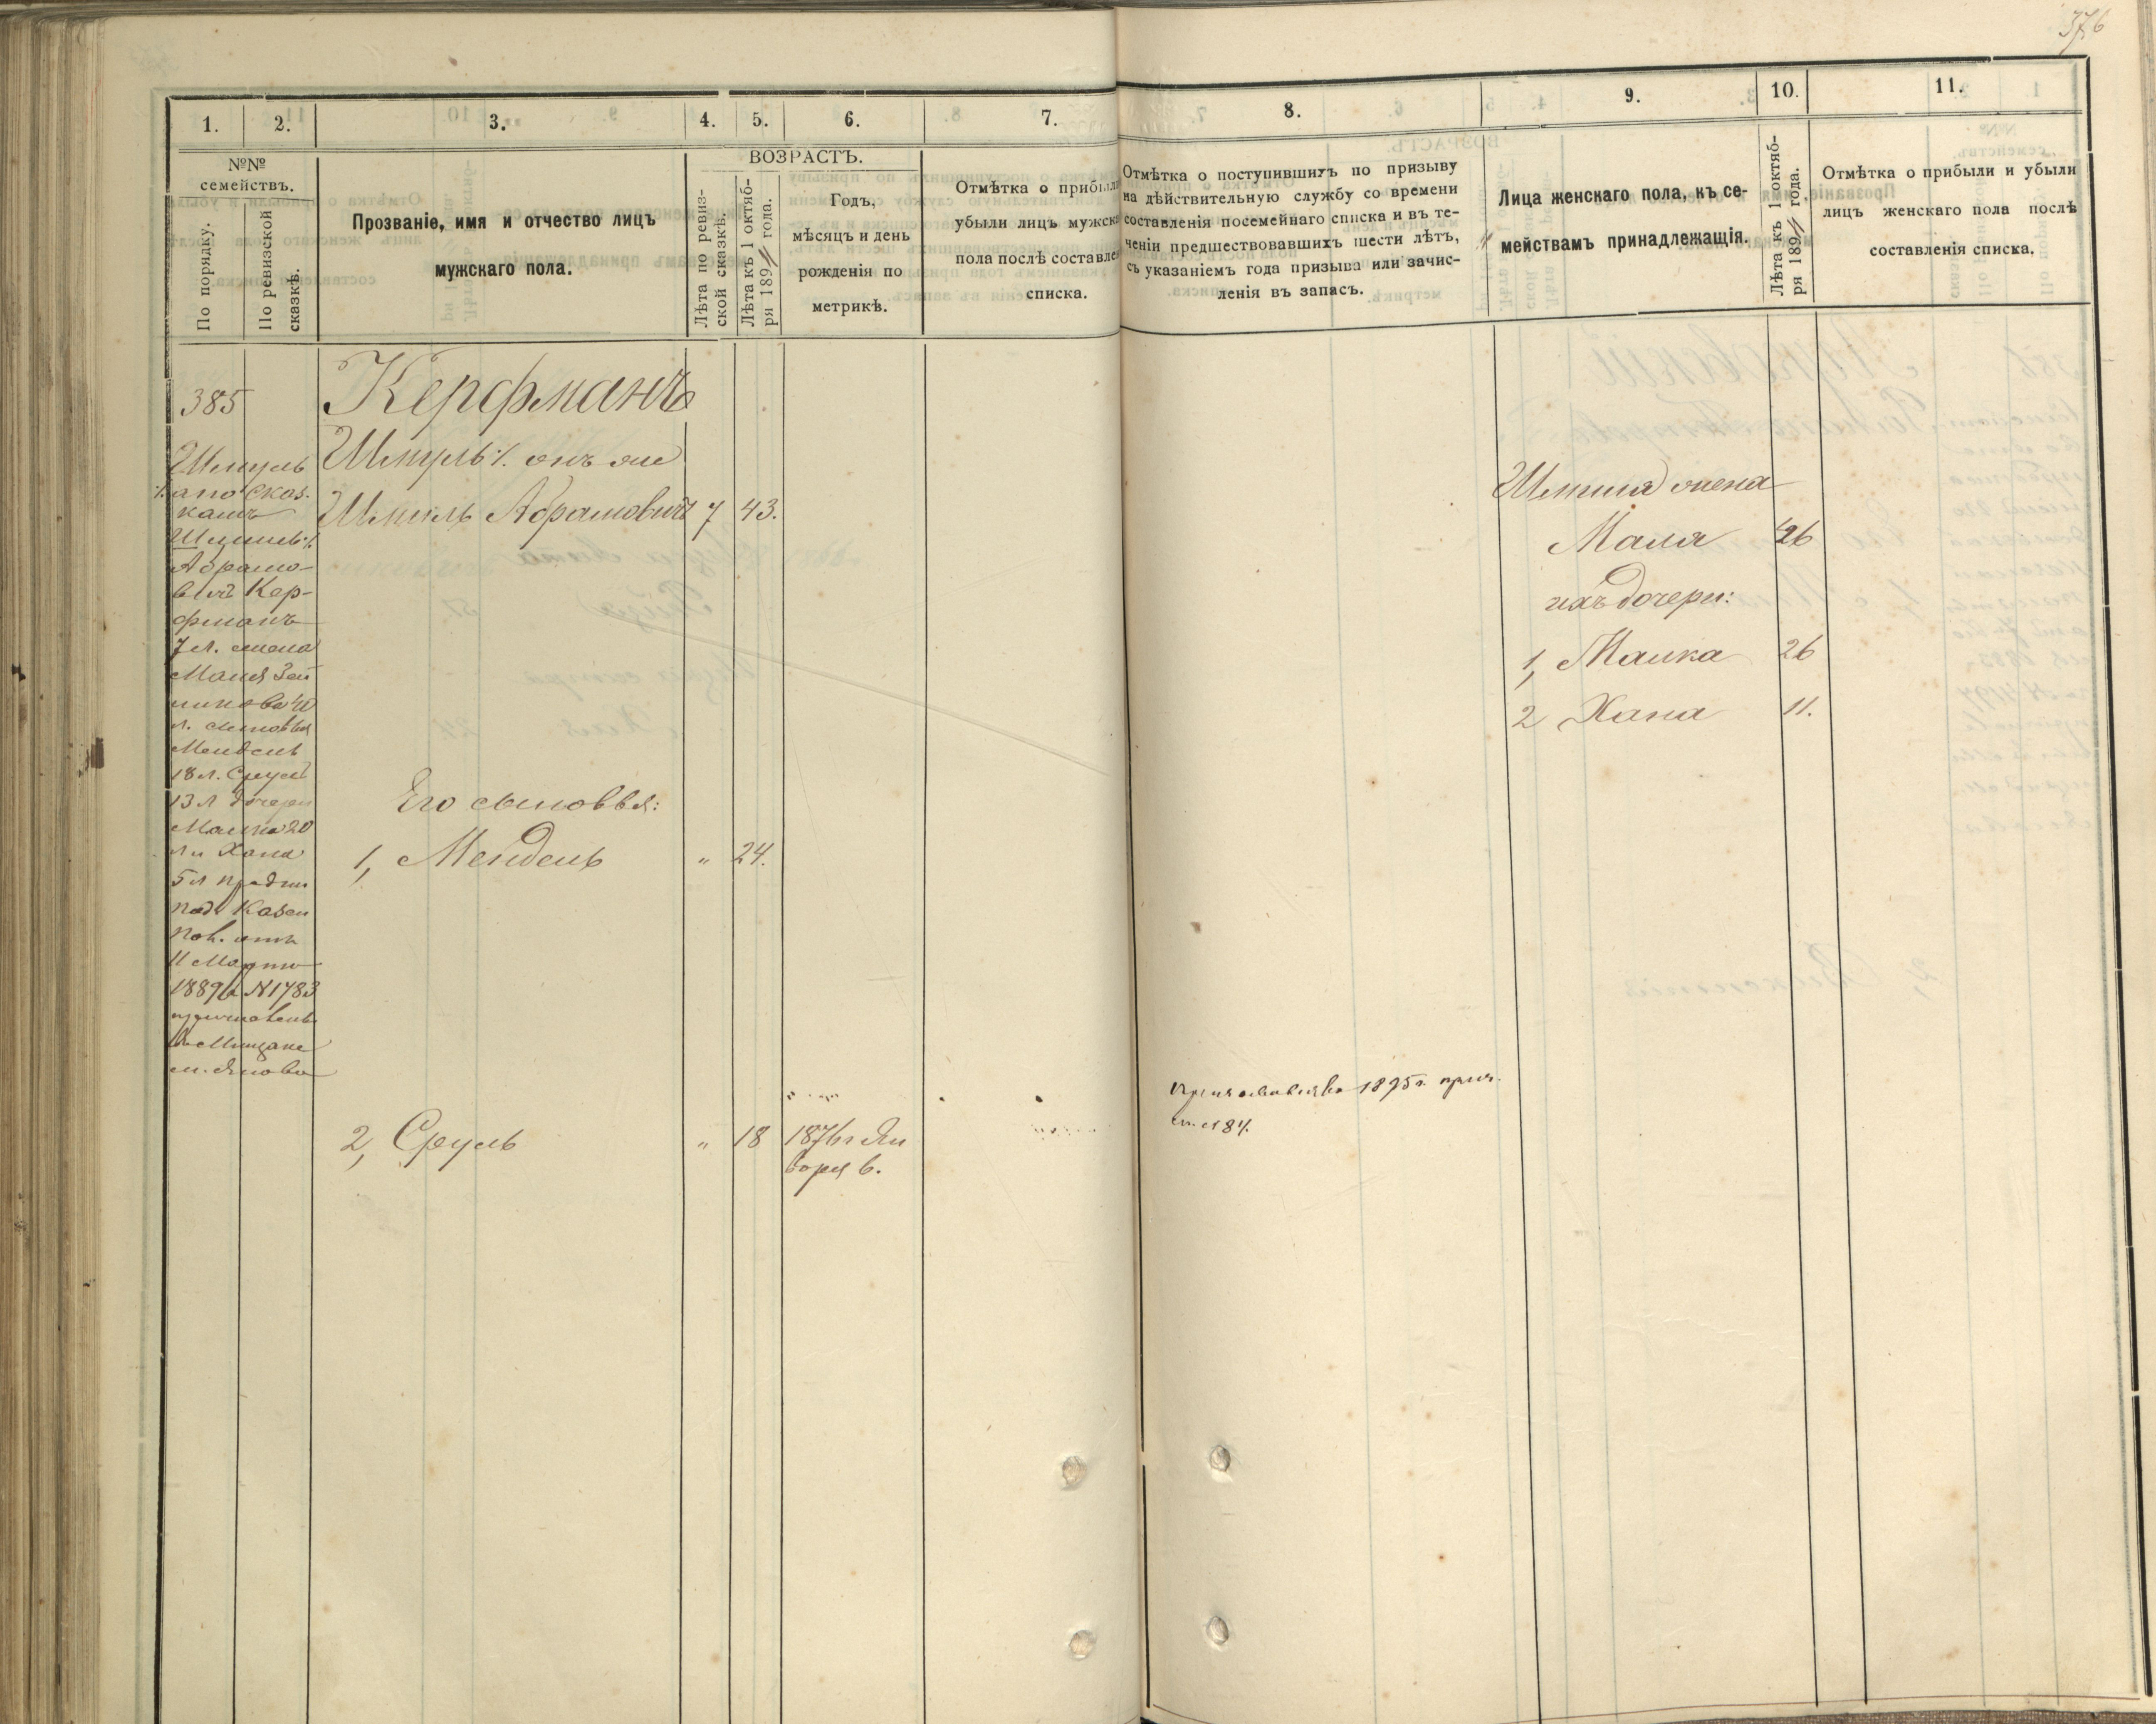 376
1.
2.
3.
4.
5.
6.
7.
8.
9.
10.
11.
№№ семействъ.
По порядку.
По ревизской сказкѣ.
Прозваніе, имя и отчество лицъ
мужскаго пола.
ВОЗРАСТЪ.
Лѣта по ревиз-
ской сказкѣ.
Лѣта къ 1 октяб-
ря 189 года.
Годъ,
мѣсяцъ и день
рожденія по
метрикѣ.
Отмѣтка о прибыли
убыли лицъ мужска
пола послѣ составле
списка.
Отмѣтка о поступившихъ по призыву
на дѣйствительную службу со времени
составленія посемейнаго списка и въ те-
ченіи предшествовавшихъ шести лѣтъ,
съ указаніемъ года призыва или зачис-
ленія въ запасъ.
Лица женскаго пола, къ се-
мействамъ принадлежащія.
Лѣта къ 1 октяб-
ря 189 года.
Отмѣтка о прибыли и убыли
лицъ женскаго пола послѣ
составленія списка.
385
Керфманъ
Шмуль онъ же
Шмиль Абрамовичъ 7 43.
Шмуль
а по сказ.
камъ
Абрамо-
вичъ Кер-
фманъ
7 л. жена
Маля
л. сыновья
Мендель
18 л. Сруль
13 л дочери
Малка 20
л и Хана
5 л
Казен
Пал. отъ
11 Марта
1889 г N 1783
въ Мищане
м. Янова
Его сыновья:
1, Мендель " 24.
2, Сруль " 18 1876 г Ян
варя 6.
1895 г.
Шмиля жена
Маля 46
ихъ дочери:
1, Малка 26
2 Хана 11.